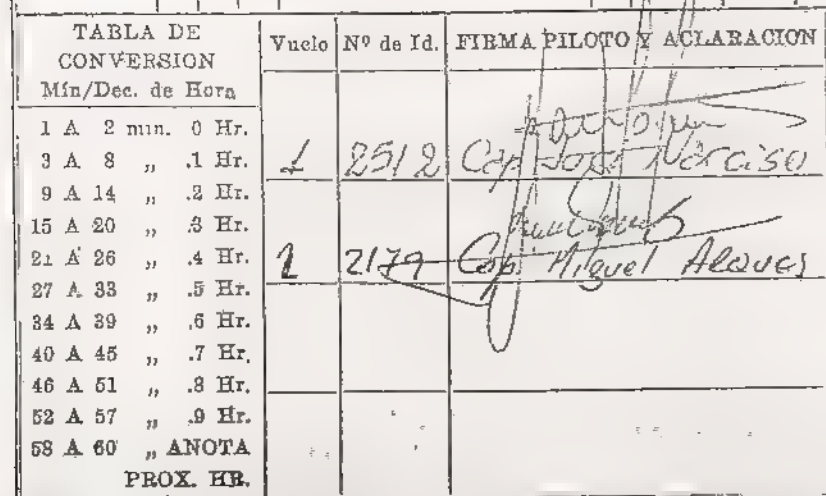 TABLA DE
CONVERSION
Mín/Dec. de Hora
1 A 2 min. 0 Hr.
3 A 8 „ .1 Hr.
9 A 14 „ .2 Hr.
15 A 20 „ .3 Hr.
21 A 26 „ .4 Hr.
27 A 33 „ .5 Hr.
34 A 39 „ .6 Hr.
40 A 45 „ .7 Hr.
46 A 51 „ .8 Hr.
52 A 57 „ .9 Hr.
58 A 60 „ ANOTA
PROX. HR.
Vuelo Nº de Id. FIRMA PILOTO Y ACLARACION
1 2512 Cap Jose Narciso
2179 Cap Miguel